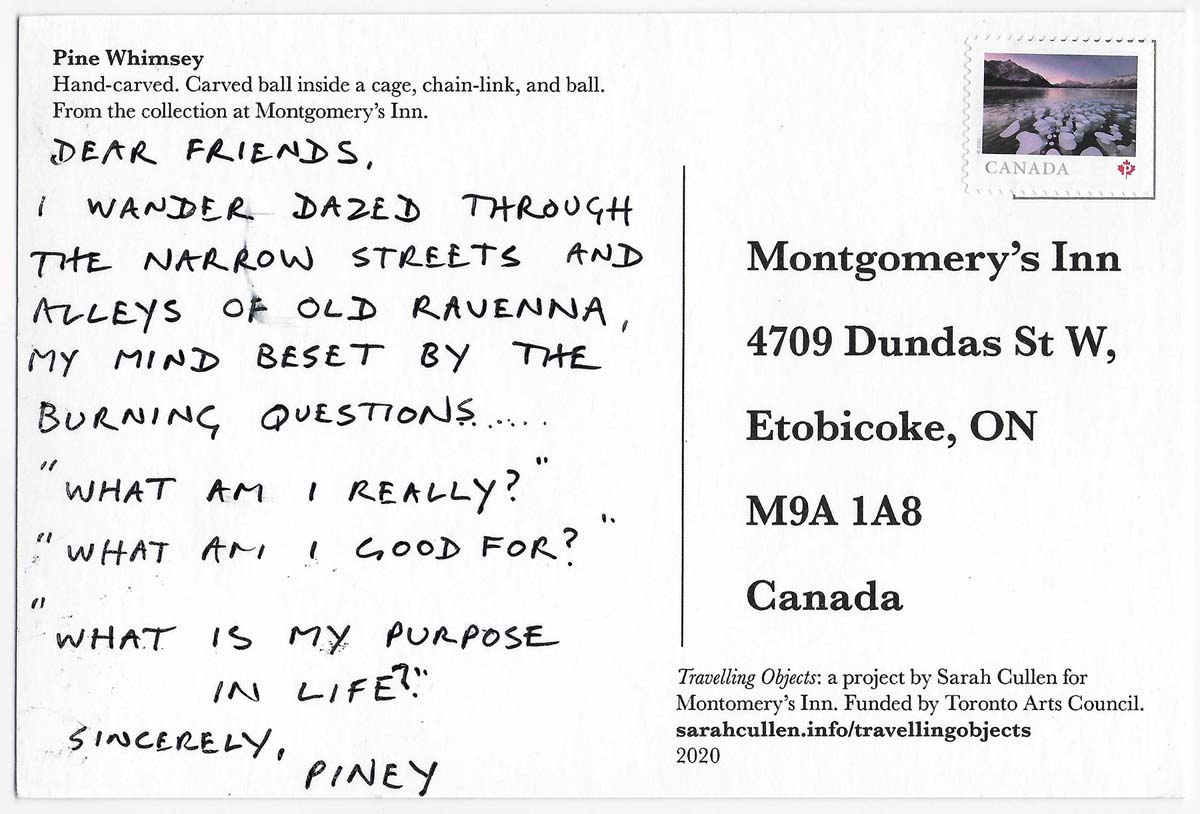 Pine Whimsey
Hand-carved. Carved ball inside a cage, chain-link, and ball.
From the collection at Montgomery's Inn.
DEAR FRIENDS,
I WANDER DAZED THROUGH
THE NARROW STREETS AND
ALLEYS OF OLD RAVENNA,
MY MIND BESET BY THE
BURNING QUESTIONS.....
"WHAT AM I REALLY?"
"WHAT AM I GOOD FOR?"
"WHAT IS MY PURPOSE
IN LIFE?"
SINCERELY,
PINEY
CANADA
P
Montgomery's Inn
4709 Dundas St W,
Etobicoke, ON
M9A 1A8
Canada
Travelling Objects: a project by Sarah Cullen for
Montomery's Inn. Funded by Toronto Arts Council.
sarahcullen.info/travellingobjects
2020